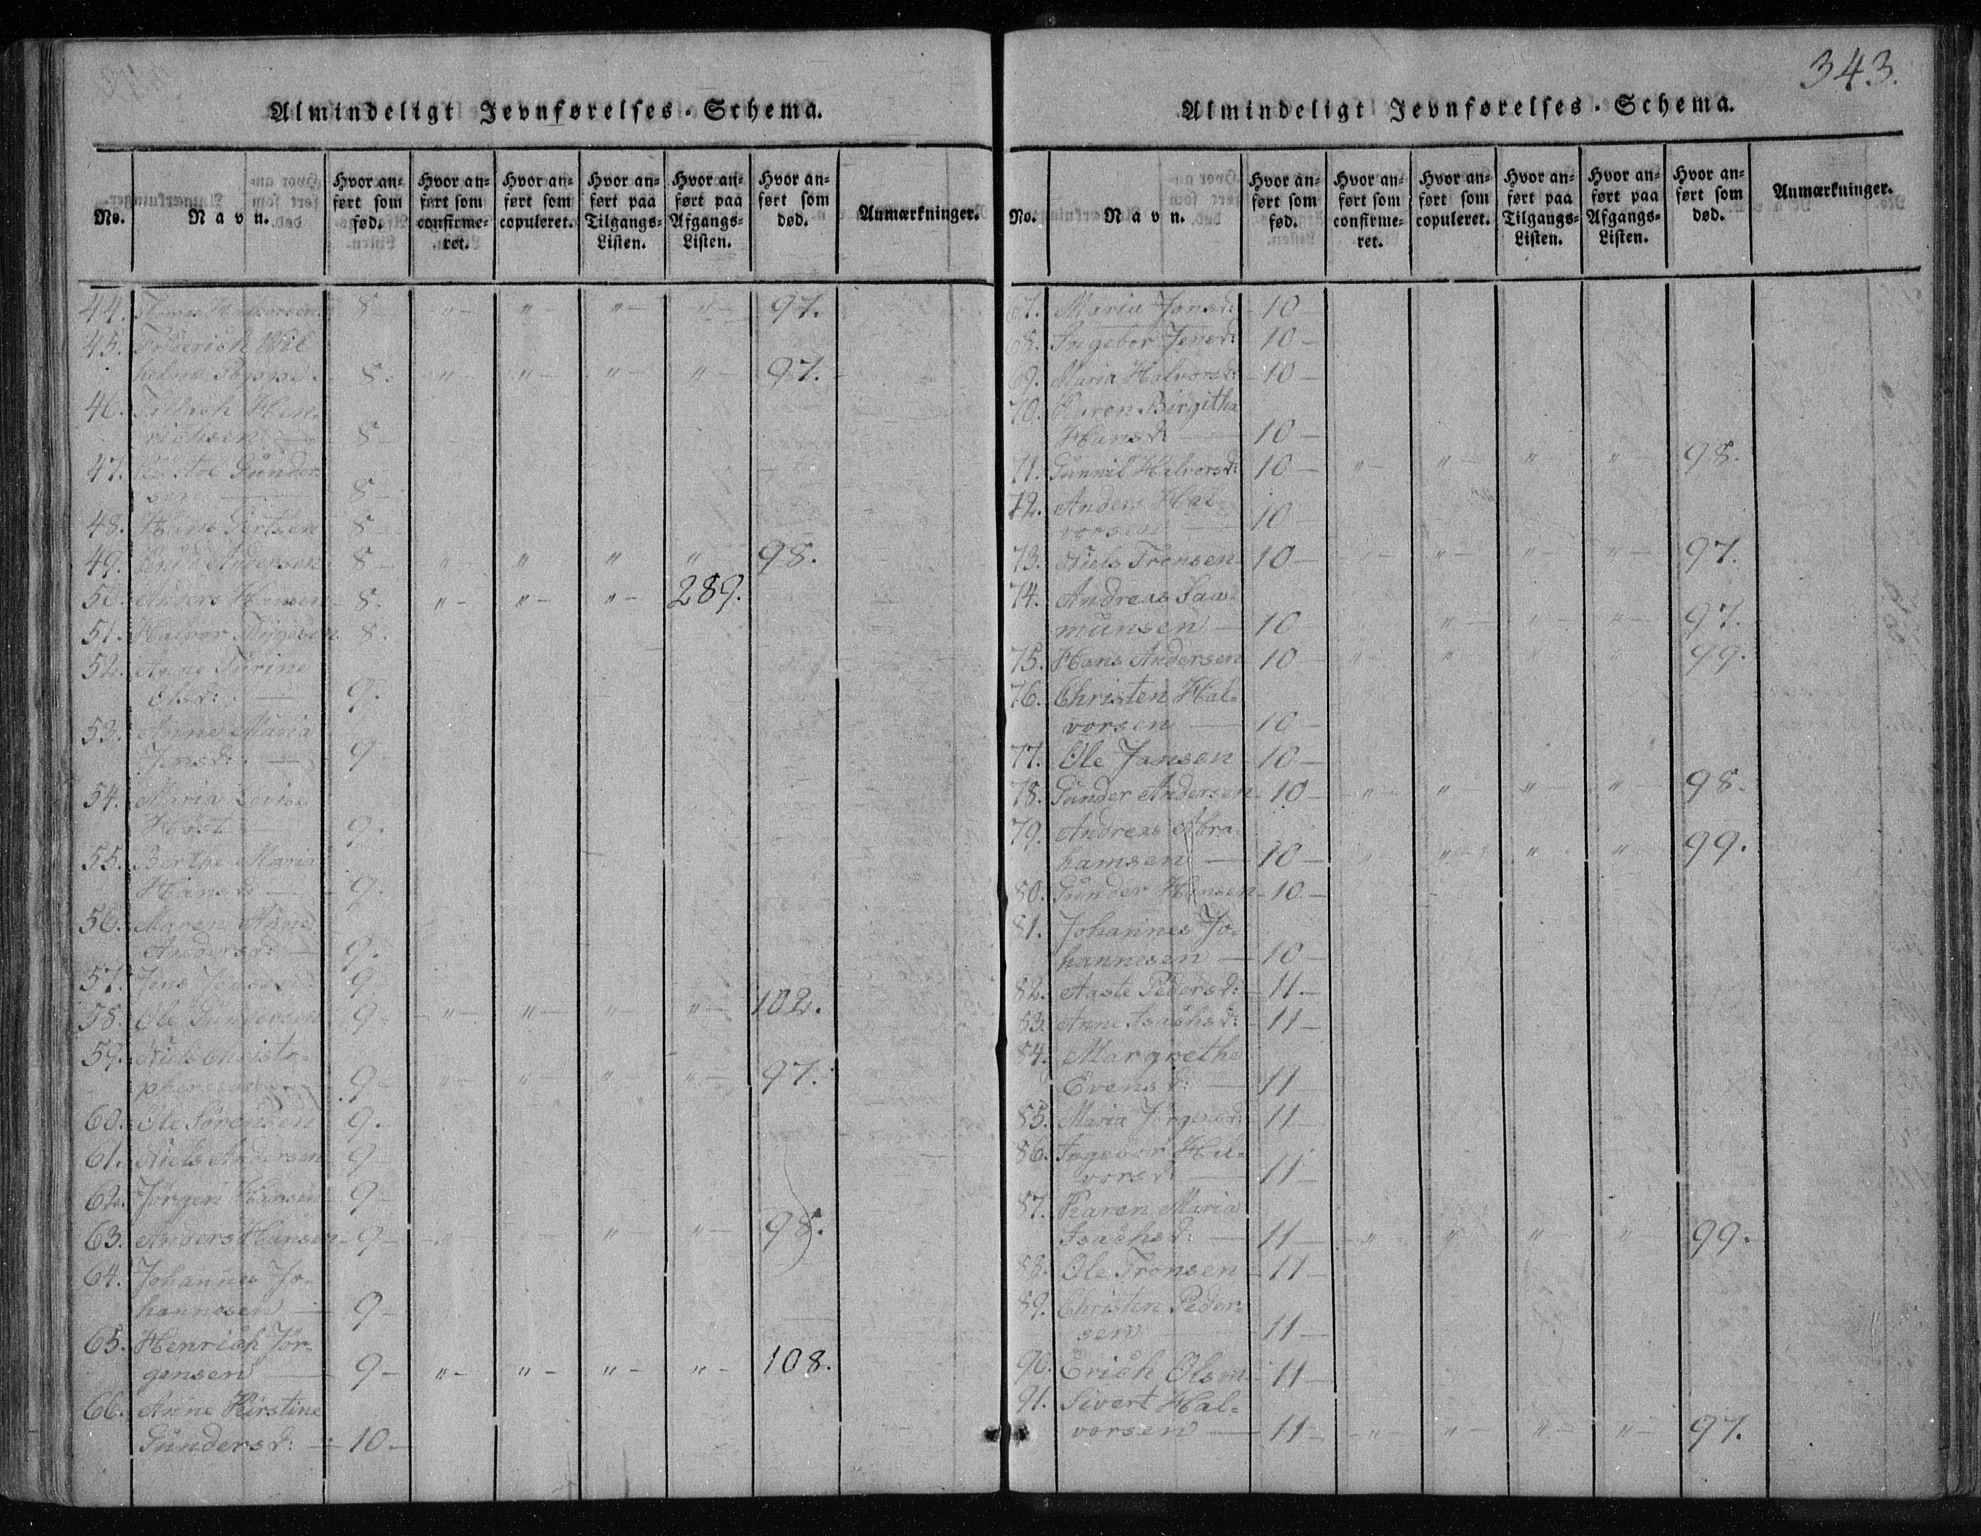 343.
Almindeligt Jevnførelses-Schema.
No.
Navn.
Hvor anført som fød.
Hvor anført som confirmeret.
Hvor anført som copuleret.
Hvor anført paa Tilgangs-Listen.
Hvor anført paa Afgangs-Listen.
Hvor anført som død.
Anmærkninger.
44. 8 - "- "- "- "- 97.
45. Friderich Wil-
8. "- "- "- "- 97.
46. Hen-
richsen 8-
47. Gunder-
sen 8-
48. Hans 8-
49. Andersen 8- "- " " " 98.
50. Anders Hansen 8. "- "- "- 289.
51. Halvor 8.
52. Anne
Olsd: 9.
53. Anne Maria
Jensd: 9-
54. Maria
9.
55. Berthe Maria
Hansd: 9.
56. Maren Anne
Andersd: 9.
57. Jens 9-
58. Ole Gundersen 9- "- "- "- "- 102.
59. Niels Christo-
phersen 9- "- "- "- "- 97.
60. Ole Sørensen 9.
61. Niels Andersen 9-
62. Jørgen Hansen 9-
63. Anders Hansen 9- "- "- "- 98.
64. Johannes Jo-
hannesen 9-
65. Henrich Jør-
gensen 9- "- "- "- "- 108.
66. Anne Kirstine
Gundersd: 10-
Almindeligt Jevnførelses-Schema.
No.
Navn.
Hvor anført som fød.
Hvor anført som confirmeret.
Hvor anført som copuleret.
Hvor anført paa Tilgangs-Listen.
Hvor anført paa Afgangs-Listen.
Hvor anført som død.
Anmærkninger.
67. Maria Jonsd: 10-
68. Ingebor Jensd: 10-
69. Maria Halvorsd: 10-
70. Karen Birgitha
Hansd: 10-
71. Gunnil Halvorsd: 10- "- "- "- "- 98.
72. Anders Hal-
vorsen 10-
73. Niels Tronsen 10- "- "- "- "- 97.
74. Andreas Saa-
munsen 10- "- "- "- 97.
75. Hans Andersen 10- "- " " " 99.
76. Christen Hal-
vorsen 10-
77. Ole Jansen 10-
78. Gunder Andersen 10- "- "- "- "- 98.
79. Andreas Abra-
hamsen 10- " "- "- "- 99.
80. Gunder Hansen 10-
81. Johannes Jo-
hannesen 10-
82. Aaste Pedersd: 11-
83. Anne Isachsd: 11-
84. Margrethe
Evensd: 11-
85. Maria Jørgensd: 11-
86. Ingebor Hal-
vorsd: 11-
87. Karen Maria
Isachsd: 11- "- " " " 99.
88. Ole Tronsen 11-
89. Christen Peder-
sen 11-
90. Erich Olsen 11-
91. Sivert Hal-
vorsen 11- "- "- "- "- 97.